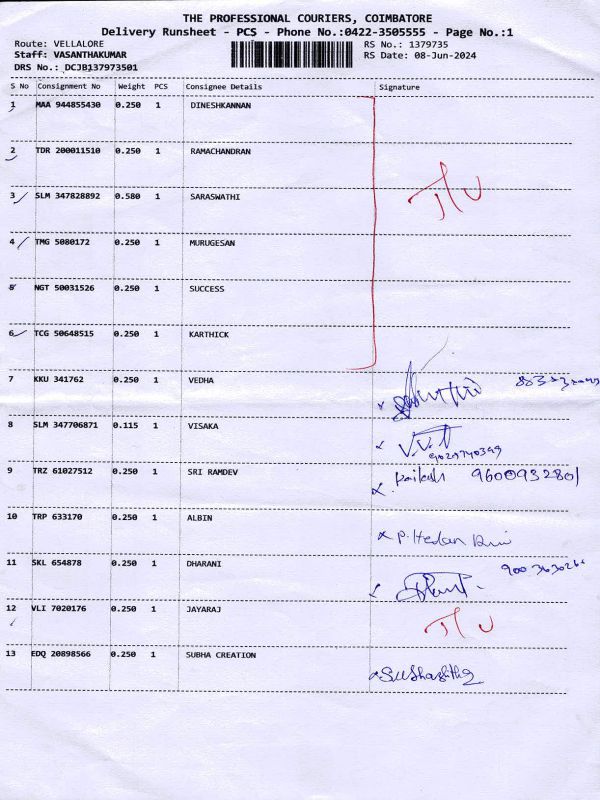 THE PROFESSIONAL COURIERS, COIMBATORE
Delivery Runsheet - PCS - Phone No.:0422-3505555 - Page No.:1
Route: VELLALORE
RS No.: 1379735
Staff: VASANTHAKUMAR
RS Date: 08-Jun-2024
DRS No.: DCJB137973501
S No Consignment No Weight PCS Consignee Details Signature
1 MAA 944855430 0.250 1 DINESHKANNAN
2 TDR 200011510 0.250 1 RAMACHANDRAN
3 SLM 347828892 0.580 1 SARASWATHI
4 TMG 5080172 0.250 1 MURUGESAN
5 NGT 50031526 0.250 1 SUCCESS
6 TCG 50648515 0.250 1 KARTHICK
7 KKU 341762 0.250 1 VEDHA
8 SLM 347706871 0.115 1 VISAKA
9 TRZ 61027512 0.250 1 SRI RAMDEV 9600932801
10 TRP 633170 0.250 1 ALBIN
11 SKL 654878 0.250 1 DHARANI
12 VLI 7020176 0.250 1 JAYARAJ
13 EDQ 20898566 0.250 1 SUBHA CREATION